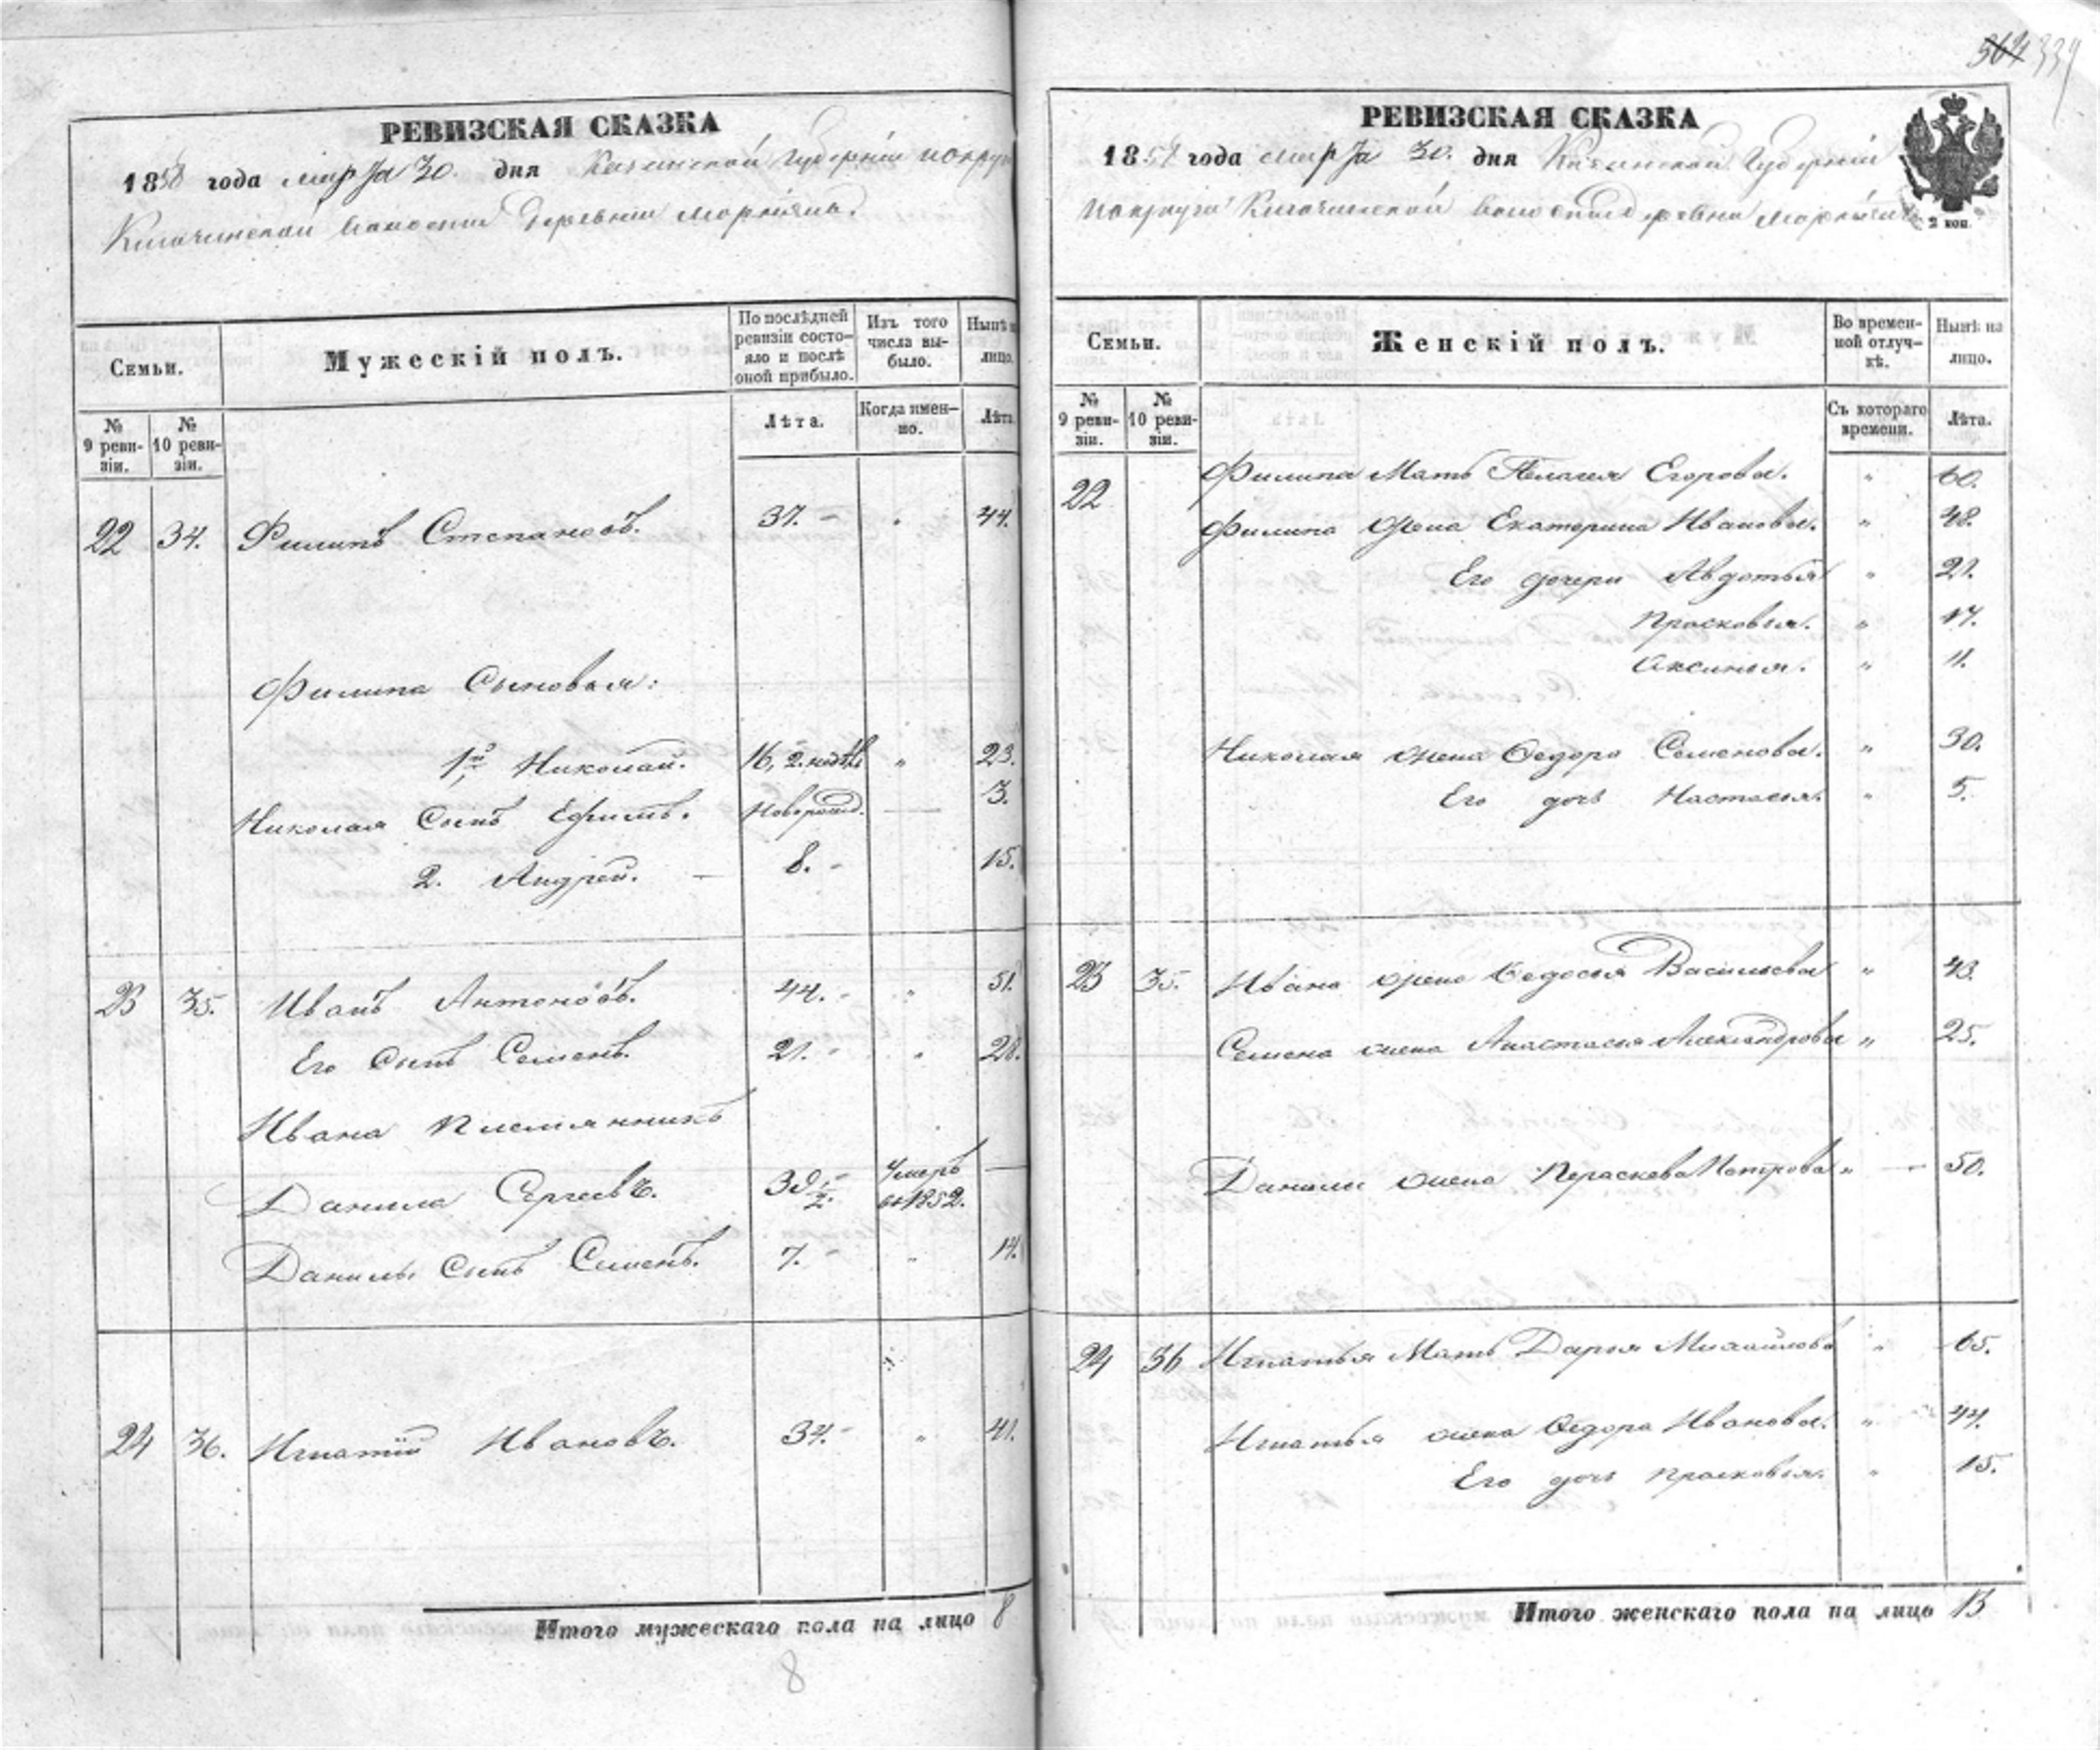 564 339
РЕВИЗСКАЯ СКАЗКА
1858 года марта 30. дня Казанской Губерніи
деревни
Семьи.
Мужескій полъ.
По послѣдней ревизіи состо-
яло и послѣ
оной прибыло.
Изъ того
числа вы-
было.
Нынѣ на
лицо.
№
9 реви-
зіи.
№
10 реви-
зіи.
Лѣта.
Когда имен-
но.
Лѣта
22 34. Филипъ Степановъ. 37. - " 44.
Филипа Сыновья:
1й Николай. 16, 2. " 23.
Николая Сынъ Ефимъ. Новорожд. — 3.
2. Андрей. — 8. - 15.
23 35. Иванъ Антоновъ. 44. - " 51.
Его Сынъ Семенъ. 21. - " 28.
Ивана племянникъ
Данила Сергеевъ. 39 1/2. Умеръ
въ 1852. —
Данилы Сынъ Семенъ. 7. - " 14.
24 36. Игнатій Ивановъ. 34. - " 41.
Итого мужескаго пола на лицо 8
8
РЕВИЗСКАЯ СКАЗКА
1858 года марта 30. дня Казанской Губерніи
волости деревни
2 коп.
Семьи.
Женскій полъ.
Во времен-
ной отлуч-
кѣ.
Нынѣ на
лицо.
№
9 реви-
зіи.
№
10 реви-
зіи.
Съ котораго
времени.
Лѣта.
22 Филипа Мать Пелагея Егорова. " 60.
Филипа жена Екатерина Иванова. " 48.
Его дочери Авдотья " 21.
Прасковья. " 17.
Аксинья. " 11.
Николая жена Федора Семенова. " 30.
Его дочь Настасья. " 5.
23 35. Ивана жена Федосья Васильева " 43.
Семена жена Анастасья Александрова " 25.
Данилы жена Параскева Петрова " — 50.
24 36 Игнатья Мать Дарья Михайлова " 65.
Игнатья жена Федора Иванова. " 44.
Его дочь Прасковья. " 15.
Итого женскаго пола на лицо 13